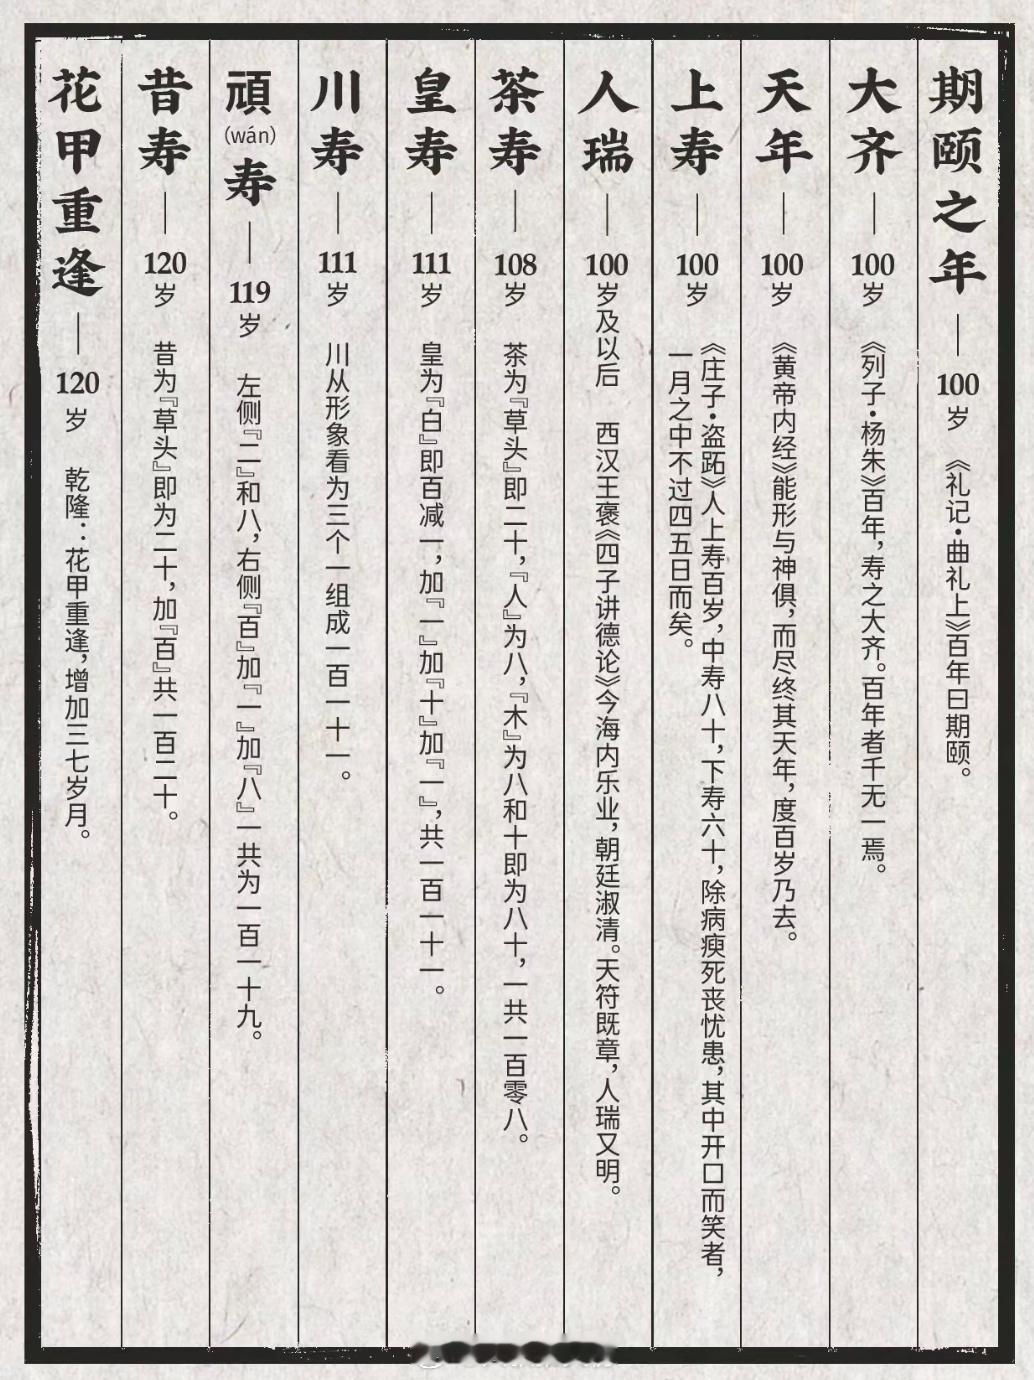 期颐之年——100岁 《礼记·曲礼上》百年曰期颐。
大齐——100岁 《列子·杨朱》百年，寿之大齐。百年者千无一焉。
天年——100岁 《黄帝内经》能形与神俱，而尽终其天年，度百岁乃去。
上寿——100岁 《庄子·盗跖》人上寿百岁，中寿八十，下寿六十，除病瘐死丧忧患，其中开口而笑者，
一月之中不过四五日而矣。
人瑞——100岁及以后 西汉王褒《四子讲德论》今海内乐业，朝廷淑清。天符既章，人瑞又明。
茶寿——108岁 茶为『草头』即二十，『人』为八，『木』为八和十即为八十，一共一百零八。
皇寿——111岁 皇为『白』即百减一，加『一』加『十』加『一』，共一百一十一。
川寿——111岁 川从形象看为三个一组成一百一十一。
頑(wán)寿——119岁 左侧『二』和八，右侧『百』加『一』加『八』一共为一百一十九。
昔寿——120岁 昔为『草头』即为二十，加『百』共一百二十。
花甲重逢——120岁 乾隆：花甲重逢，增加三七岁月。